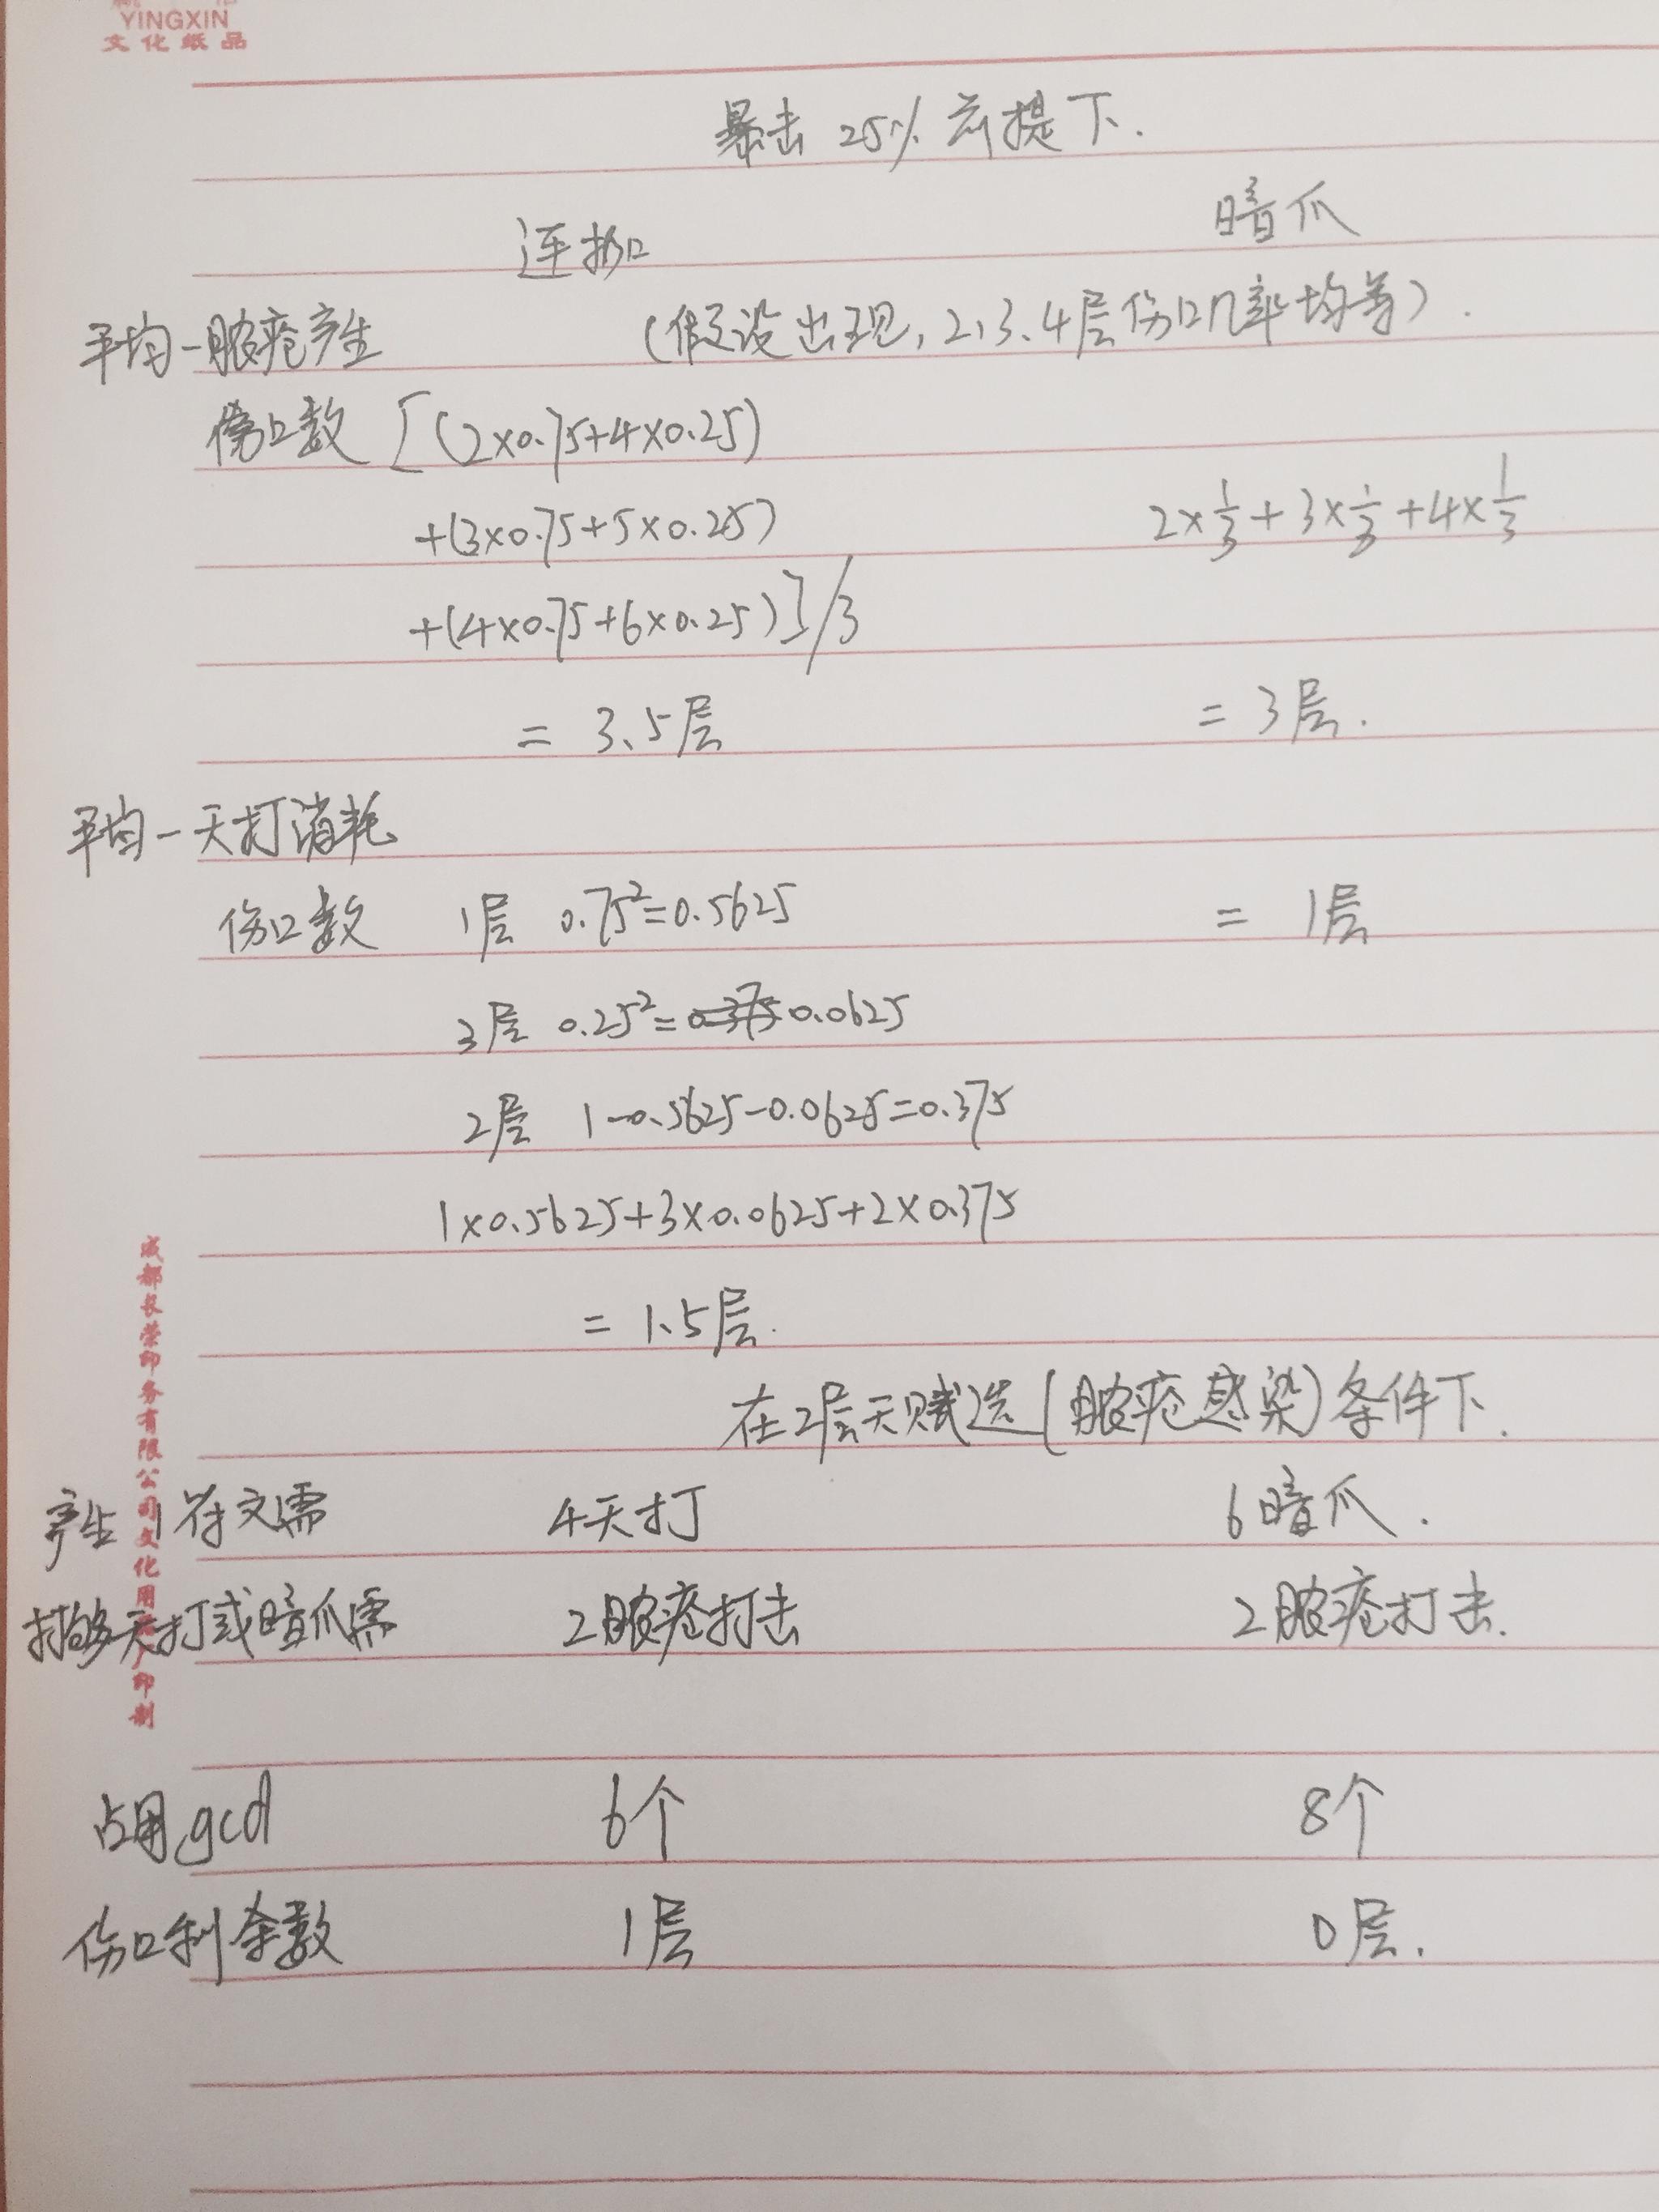 YINGXIN
文化纸品
暴击 25% 前提下.
连拗 暗爪
平均一脓疮产生 (假设出现, 2、3、4层伤口几率均等).
伤口数 [(2×0.75+4×0.25)
+(3×0.75+5×0.25) 2×1/3+3×1/3+4×1/3
+(4×0.75+6×0.25)]/3
= 3.5层 = 3层.
平均一天打消耗
伤口数 1层 0.75²=0.5625 = 1层
3层 0.25²=0.0625
2层 1-0.5625-0.0625=0.375
1×0.5625+3×0.0625+2×0.375
= 1.5层.
在2层天赋选(脓疮感染)条件下.
产生1符文需 4天打 6暗爪.
打够天打或暗爪需 2脓疮打击 2脓疮打击.
占用gcd 6个 8个
伤口剩余数 1层 0层.
成都长荣印务有限公司文化用品厂印制